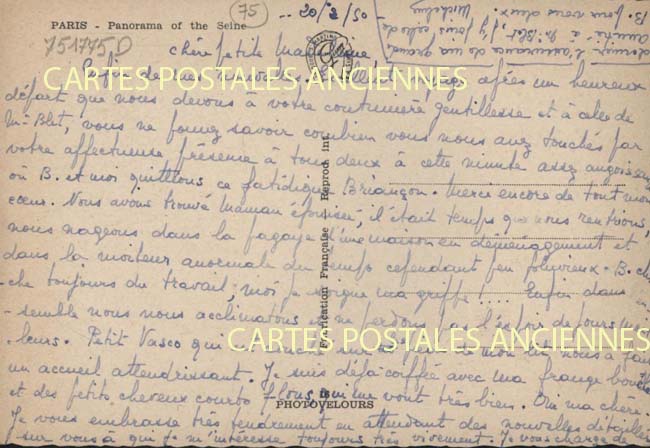 PARIS - Panorama of the Seine
75
20/2/50
751775D
chère petite Madame
Enfin de nos nouvelles. après un heureux
départ que nous devons à votre coutumière gentillesse et à celle de
Mr Blet, vous ne pouvez savoir combien vous nous avez touchés par
votre affectueuse présence à tous deux à cette minute assez
où B. et moi quittions ce fatidique Briançon. Merci encore de tout mon
cœur. Nous avons trouvé maman épuisée, il était temps que nous rentrions,
nous nageons dans la pagaye d'une maison en déménagement et
dans la moiteur anormale du temps cependant peu pluvieux. B.
che toujours du travail, moi je ma griffe .... Enfin dans
semble nous nous acclimatons et ne perdons pas l'espoir de jours
leurs. Petit Vasco qui sur mon lit nous a
un accueil attendrissant. Je suis déjà coiffée avec ma frange
et des petits cheveux courts flous qui me vont très bien. Oui ma chère.
Je vous embrasse très tendrement en attendant des nouvelles détaillées
sur vous à qui je m'intéresse toujours très vivement.
l'assurance de ma grande
Amitié à Mr Blet
B. pour vous deux.
Micheline
CARTES POSTALES ANCIENNES
CARTES POSTALES ANCIENNES
Fabrication Française - Reprod. int.
PHOTOVELOURS